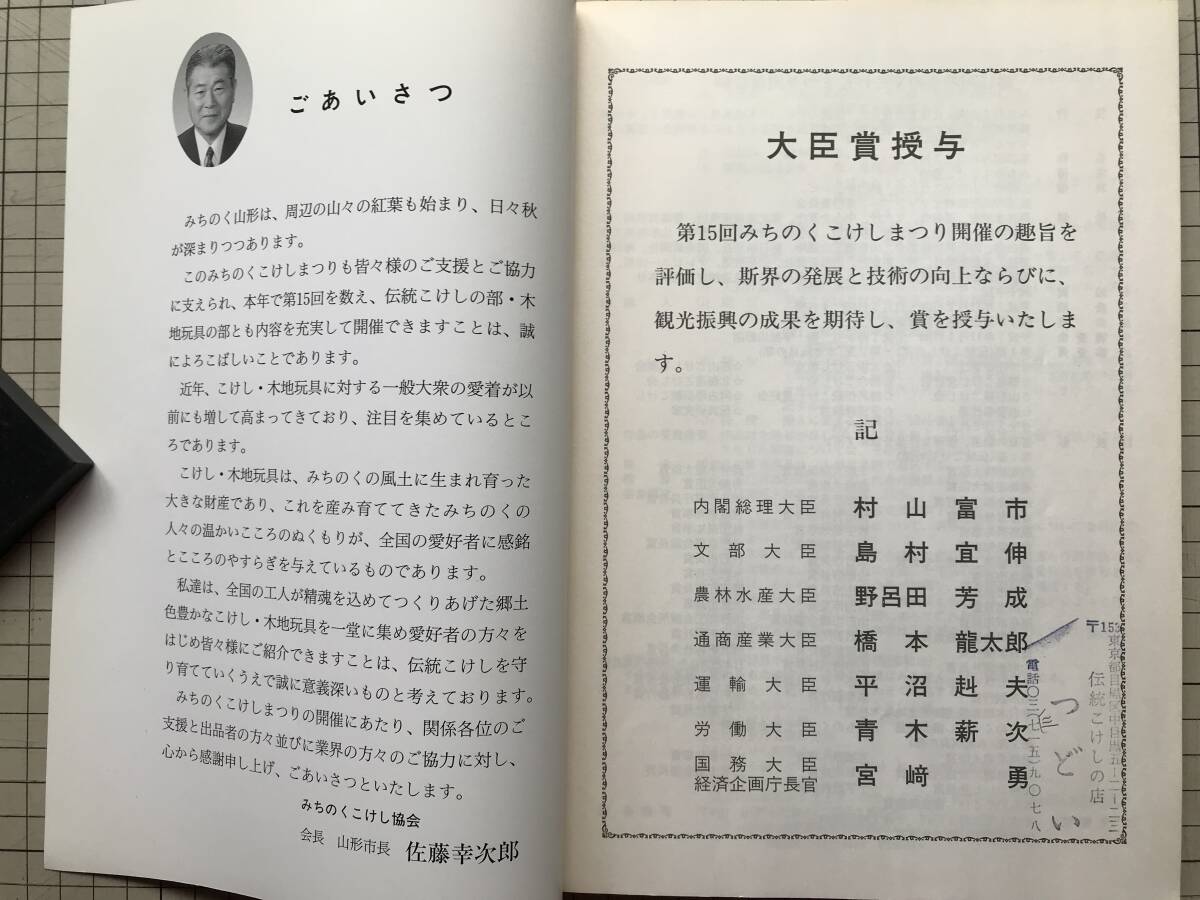 ごあいさつ
みちのく山形は、周辺の山々の紅葉も始まり、日々秋
が深まりつつあります。
このみちのくこけしまつりも皆々様のご支援とご協力
に支えられ、本年で第15回を数え、伝統こけしの部・木
地玩具の部とも内容を充実して開催できますことは、誠
によろこばしいことであります。
近年、こけし・木地玩具に対する一般大衆の愛着が以
前にも増して高まってきており、注目を集めているとこ
ろであります。
こけし・木地玩具は、みちのくの風土に生まれ育った
大きな財産であり、これを産み育ててきたみちのくの
人々の温かいこころのぬくもりが、全国の愛好者に感銘
とこころのやすらぎを与えているものであります。
私達は、全国の工人が精魂を込めてつくりあげた郷土
色豊かなこけし・木地玩具を一堂に集め愛好者の方々を
はじめ皆々様にご紹介できますことは、伝統こけしを守
り育てていくうえで誠に意義深いものと考えております。
みちのくこけしまつりの開催にあたり、関係各位のご
支援と出品者の方々並びに業界の方々のご協力に対し、
心から感謝申し上げ、ごあいさつといたします。
みちのくこけし協会
会長 山形市長 佐藤幸次郎
大臣賞授与
第15回みちのくこけしまつり開催の趣旨を
評価し、斯界の発展と技術の向上ならびに、
観光振興の成果を期待し、賞を授与いたしま
す。
記
内閣総理大臣 村山富市
文部大臣 島村宜伸
農林水産大臣 野呂田芳成
通商産業大臣 橋本龍太郎
運輸大臣 平沼赳夫
労働大臣 青木薪次
国務大臣
経済企画庁長官 宮﨑勇
〒153
東京都目黒区中目黒五-一-二三
伝統こけしの店
つどい